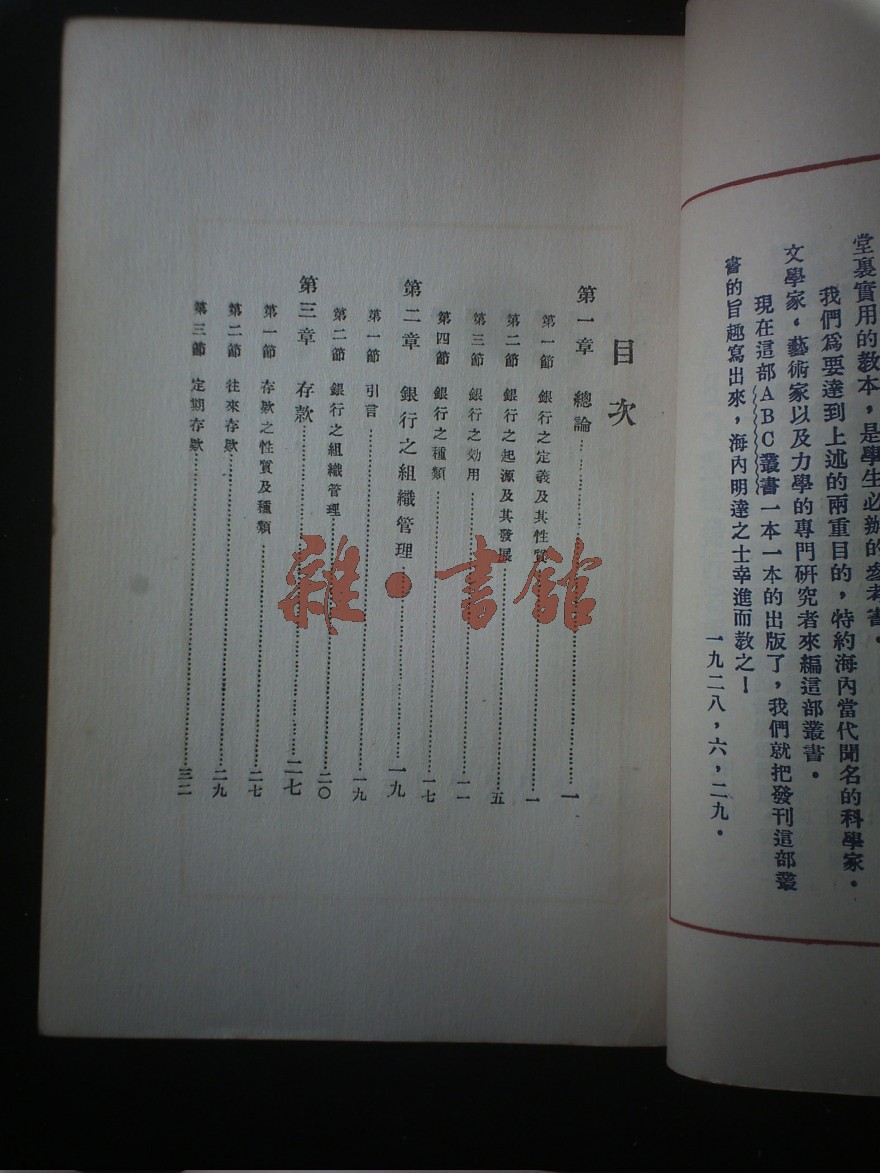 堂裏實用的教本，是學生必辦的參考書。
我們爲要達到上述的兩重目的，特約海內當代聞名的科學家，
文學家，藝術家以及力學的專門研究者來編這部叢書。
現在這部ABC叢書一本一本的出版了，我們就把發刊這部叢
書的旨趣寫出來，海內明達之士幸進而教之！
一九二八，六，二九。
目次
第一章 總論……一
第一節 銀行之定義及其性質……一
第二節 銀行之起源及其發展……五
第三節 銀行之効用……一一
第四節 銀行之種類……一七
第二章 銀行之組織管理……一九
第一節 引言……一九
第二節 銀行之組織管理……二〇
第三章 存款……二七
第一節 存款之性質及種類……二七
第二節 往來存款……二九
第三節 定期存款……三二
雜·書館